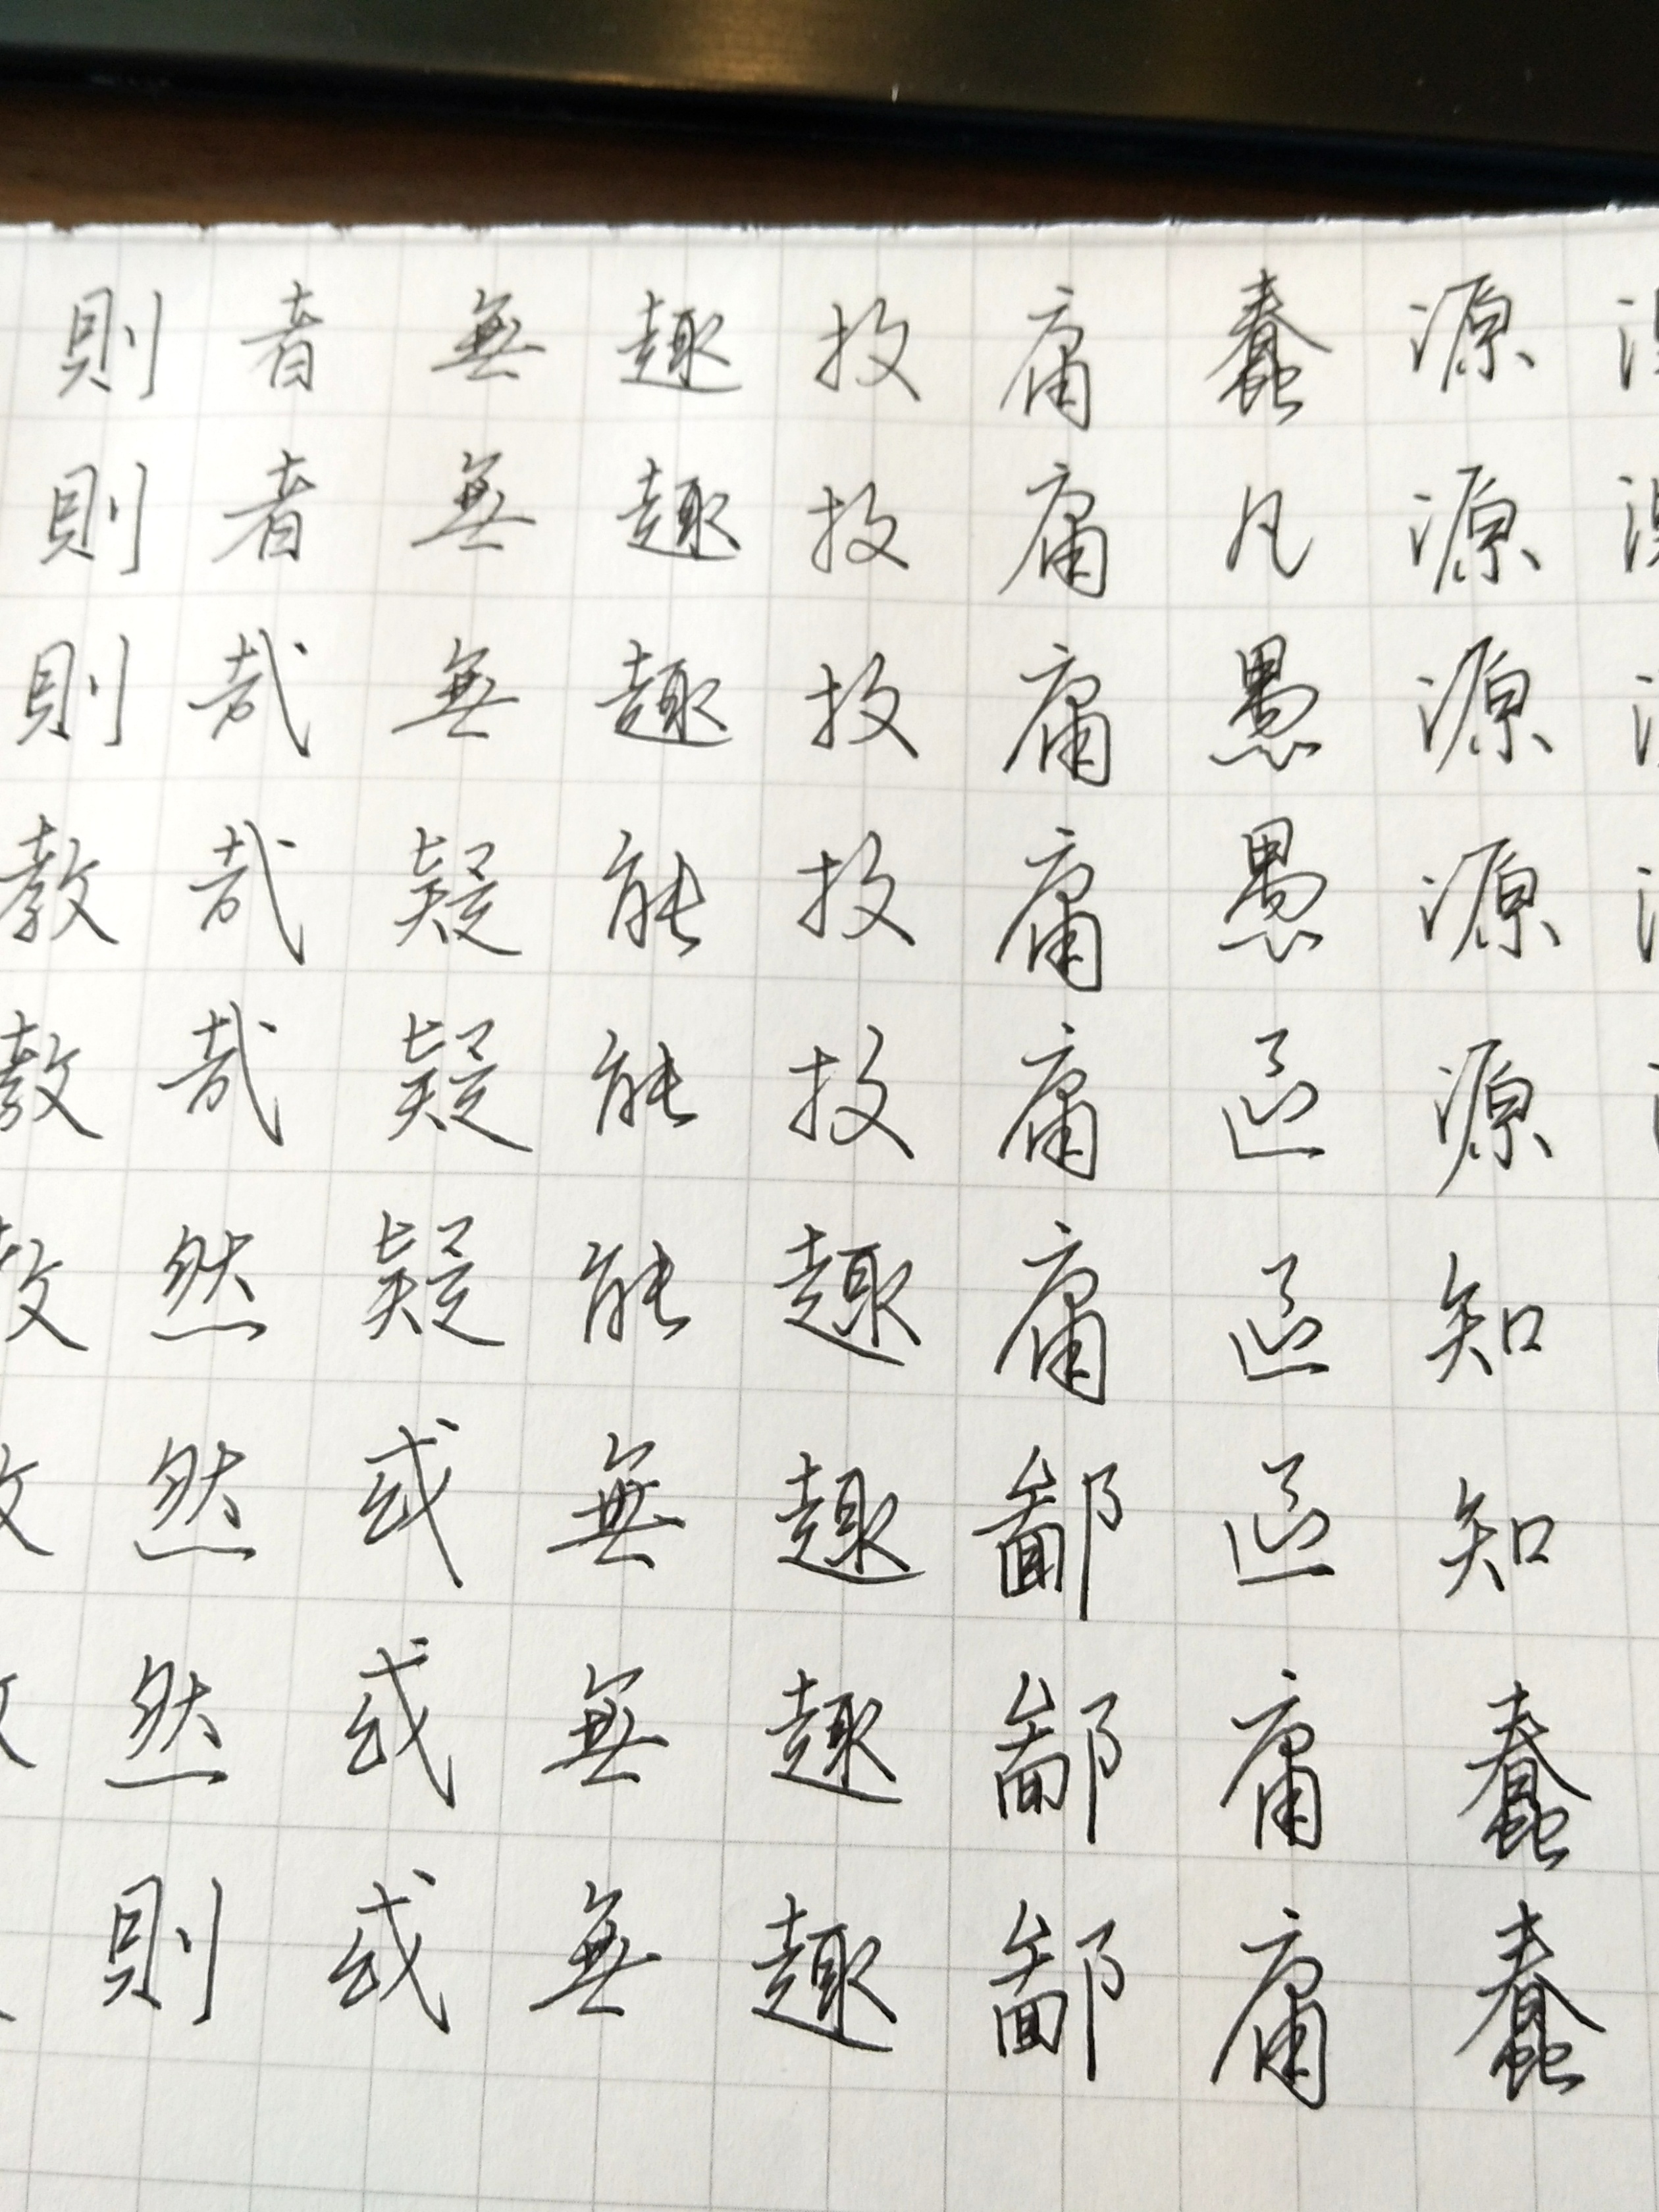 源源源源源知知蠢蠢
蠢凡愚愚區區區庸庸
庸庸庸庸庸庸鄙鄙鄙
投投投投投趣趣趣趣
趣趣趣能能能無無無
無無無疑疑疑或或或
者者哉哉哉然然然則
則則則教教